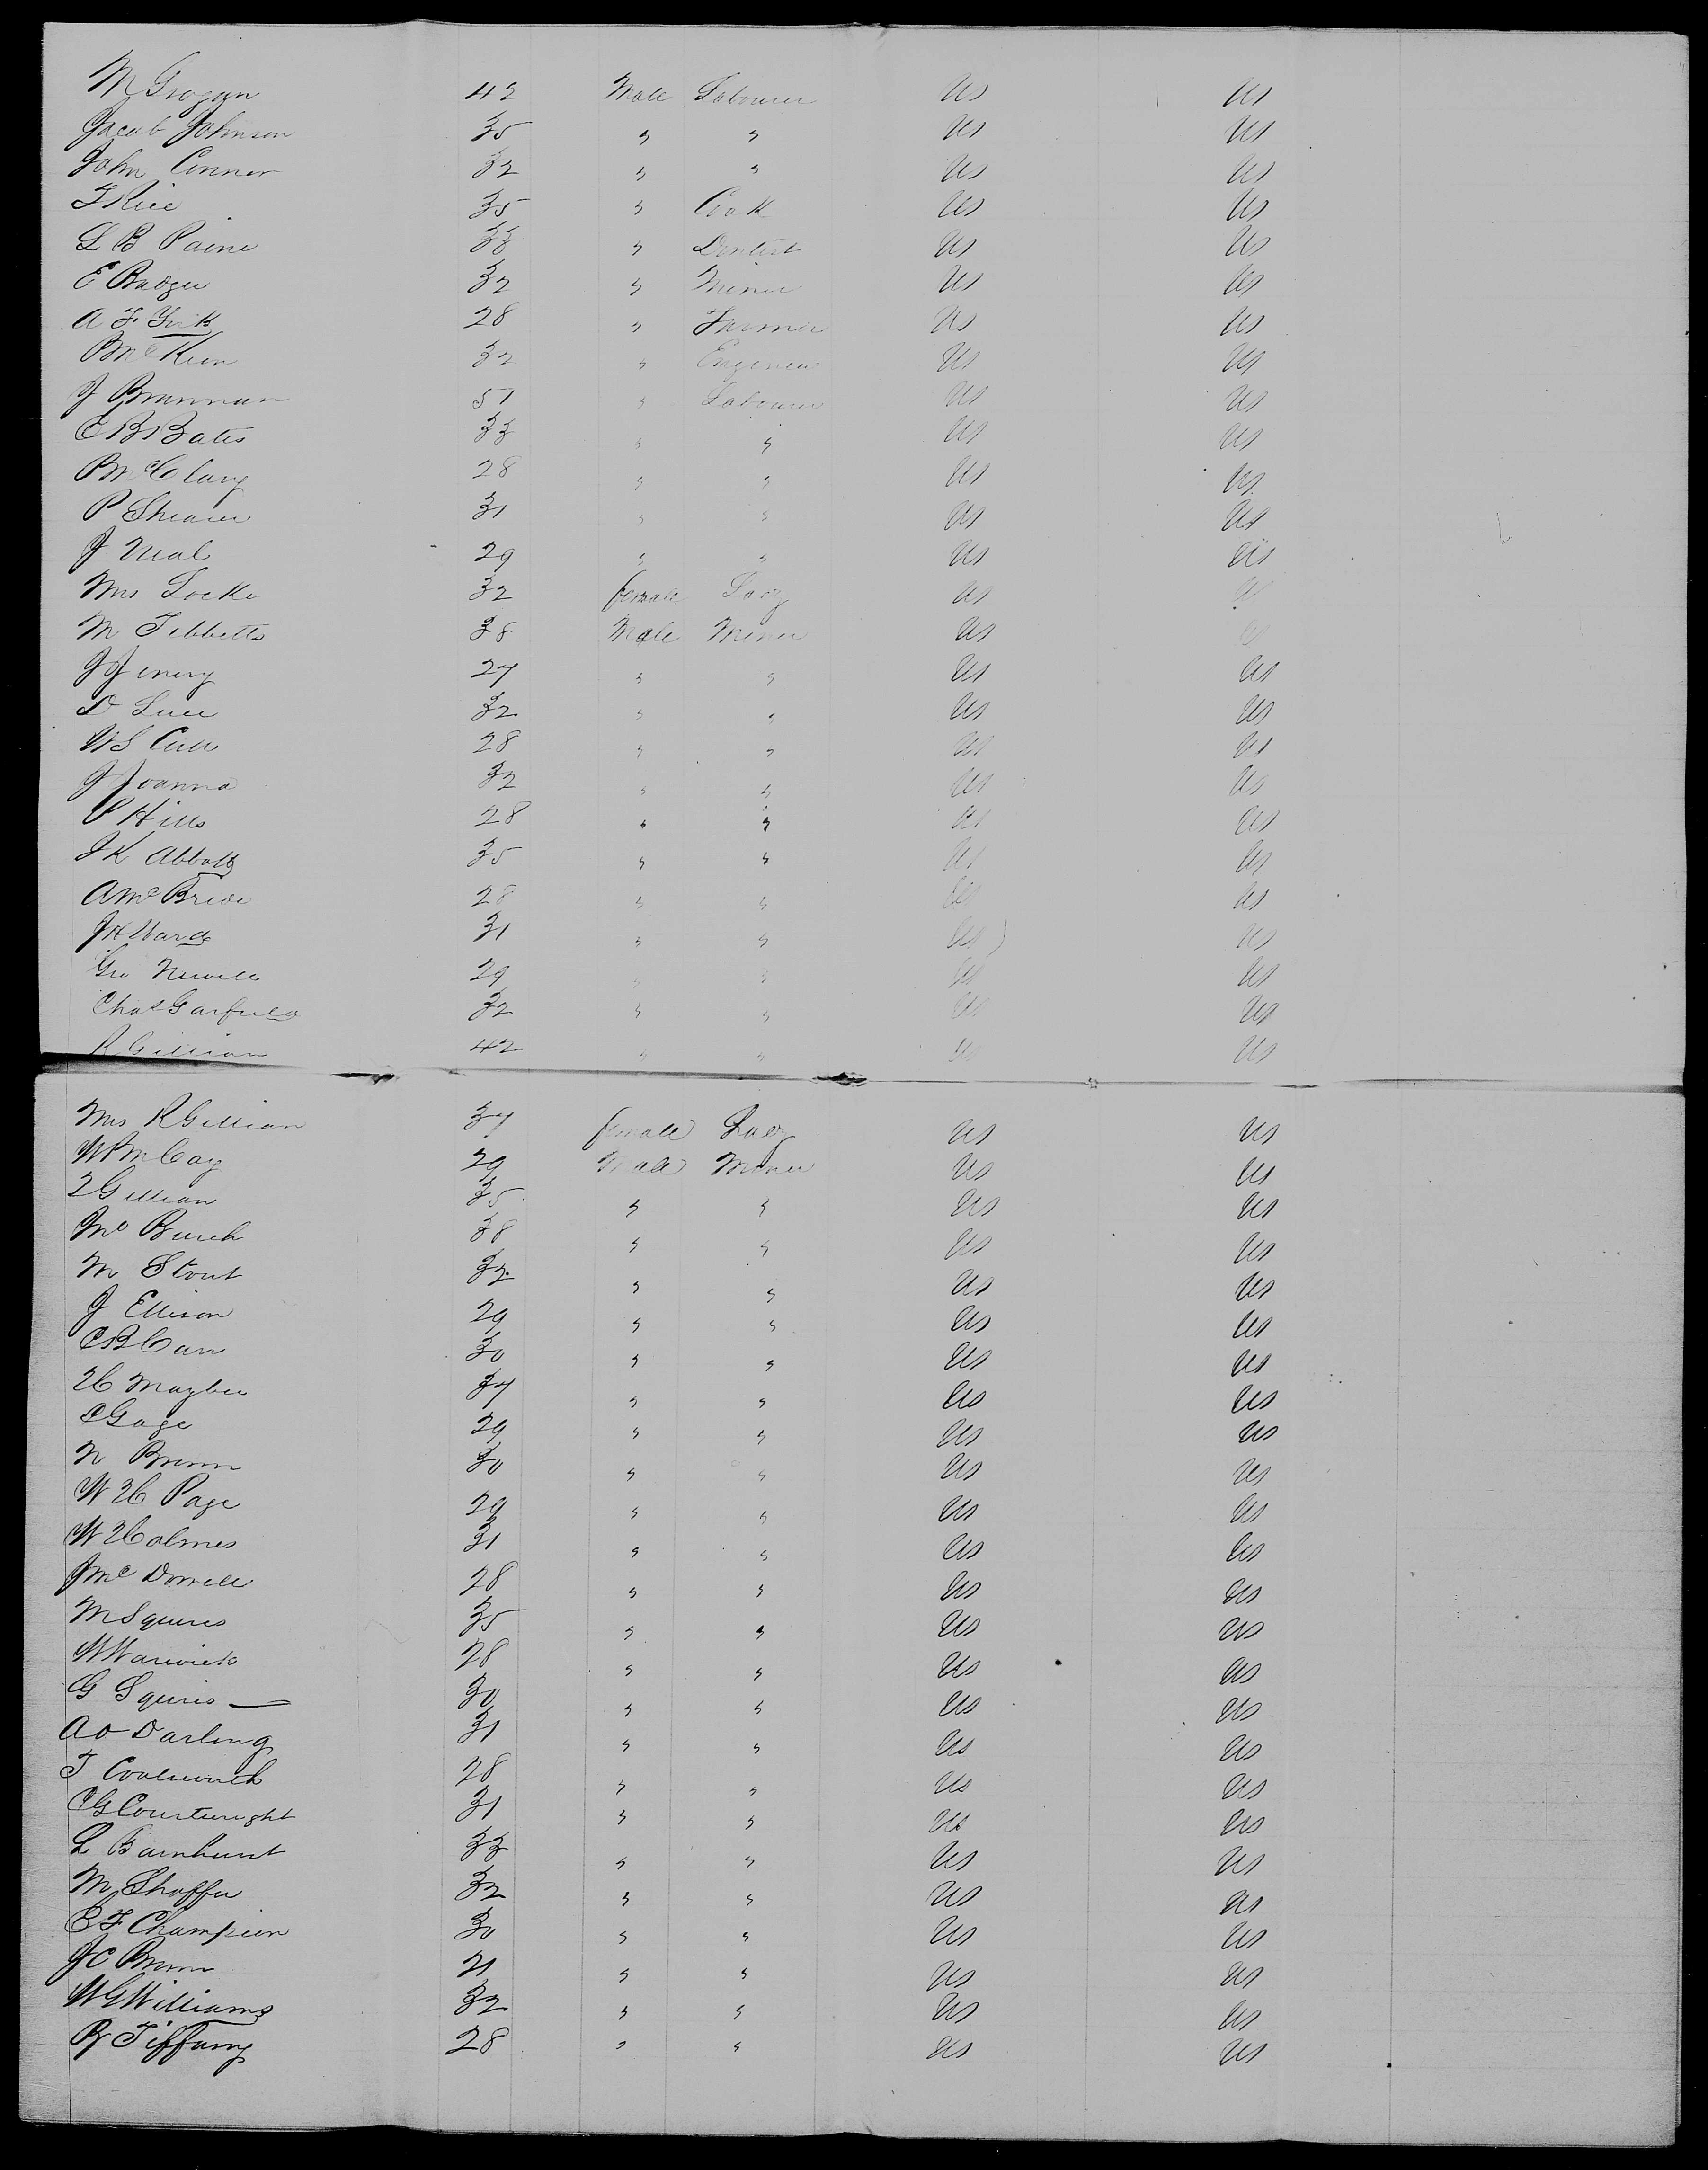 M Grogan 42 Male Labourer US US
Jacob Johnson 35 " " US US
John Connor 32 " " US US
T Rice 35 " Cook US US
L B Paine 33 " Dentist US US
E Badger 32 " Miner US US
A F York 28 " Farmer US US
P McKeon 32 " Engineer US US
J Brannan 51 " Labourer US US
C B Bates 33 " " US US
B McClary 28 " " US US
P Shearer 31 " " US US
J Neal 29 " " US US
Mrs Locke 32 female Lady US
M Tebbetts 38 Male Miner US
J J 27 " " US US
D Luce 32 " " US US
W S 28 " " US US
J Joanna 32 " " US US
P Hills 28 " " US US
J K Abbott 35 " " US US
A McBride 28 " " US US
J H Ward 31 " " US US
Geo Newell 29 " " US US
Chas Garfield 32 " " US US
R Gillian 42 " " US US
Mrs R Gillian 37 female Lady US US
W P McCay 29 Male Miner US US
Gillian 35 " " US US
Burch 38 " " US US
M Stout 32 " " US US
J Ellison 29 " " US US
C B Carr 30 " " US US
H Maybee 37 " " US US
C Gage 29 " " US US
N Brown 30 " " US US
W H Page 29 " " US US
W Holmes 31 " " US US
J McDowell 28 " " US US
M Squires 35 " " US US
W Warwick 28 " " US US
G Squires 30 " " US US
A O Darling 31 " " US US
T 28 " " US US
C G Courtwright 31 " " US US
L Barnhurst 33 " " US US
M Shaffer 32 " " US US
E F Champion 30 " " US US
J C Brown 21 " " US US
W G Williams 32 " " US US
B Tiffany 28 " " US US